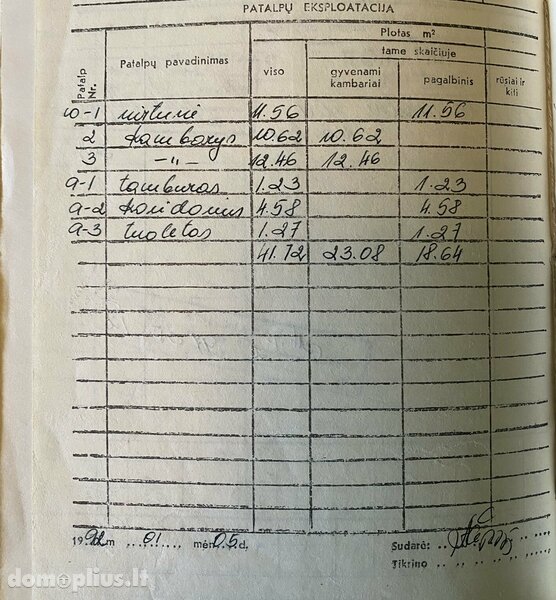 PATALPŲ EKSPLOATACIJA
Patalp Nr. Patalpų pavadinimas Plotas m²
viso tame skaičiuje rūsiai ir kiti
gyvenami kambariai pagalbinis
10-1 virtuvė 11.56 11.56
2 kambarys 10.62 10.62
3 —„— 12.46 12.46
a-1 tamburas 1.23 1.23
a-2 koridorius 4.58 4.58
a-3 tualetas 1.27 1.27
41.72 23.08 18.64
19 m 01 mėn. 05 d.
Sudarė:
Tikrino
domoplius.lt